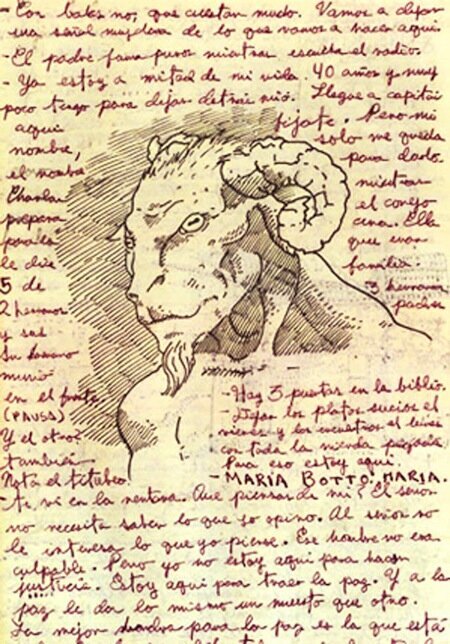 - Con balas no, que cuestan mucho. Vamos a dejar
una señal muy clara de lo que vamos a hacer aqui
- El padre fuma puros mientras escucha el radio.
- Ya estoy a mitad de mi vida. 40 años y muy
poco tengo para dejar detras mio. Llegue a capitán
aqui fijate. Pero mi
nombre, solo me queda
el nombre para darlo.
Charlan mientras
prepara el conejo
para la cena. Ella
le dice que eran
5 de familia.
2 hermanos 3 hermanas
y sus padres
Su hermano
murió
en el frente
(PAUSA)
Y el otro
también
Nota el titubeo.
- Hay 3 puertas en la biblio.
- Dejan los platos sucios el
viernes y los encuentras el lunes
con toda la mierda pegada
Para eso estoy aqui.
- MARIA BOTTO: MARIA.
- te vi en la Que piensas de mi? El señor
no necesita saber lo que yo opino. Al señor no
le interesa lo que yo piense. Ese hombre no era
culpable. Pero yo no estoy aqui para hacer
justicia. Estoy aqui para traer la paz. Y a la
paz le da lo mismo un muerto que otro.
La mejor para la paz es la que está